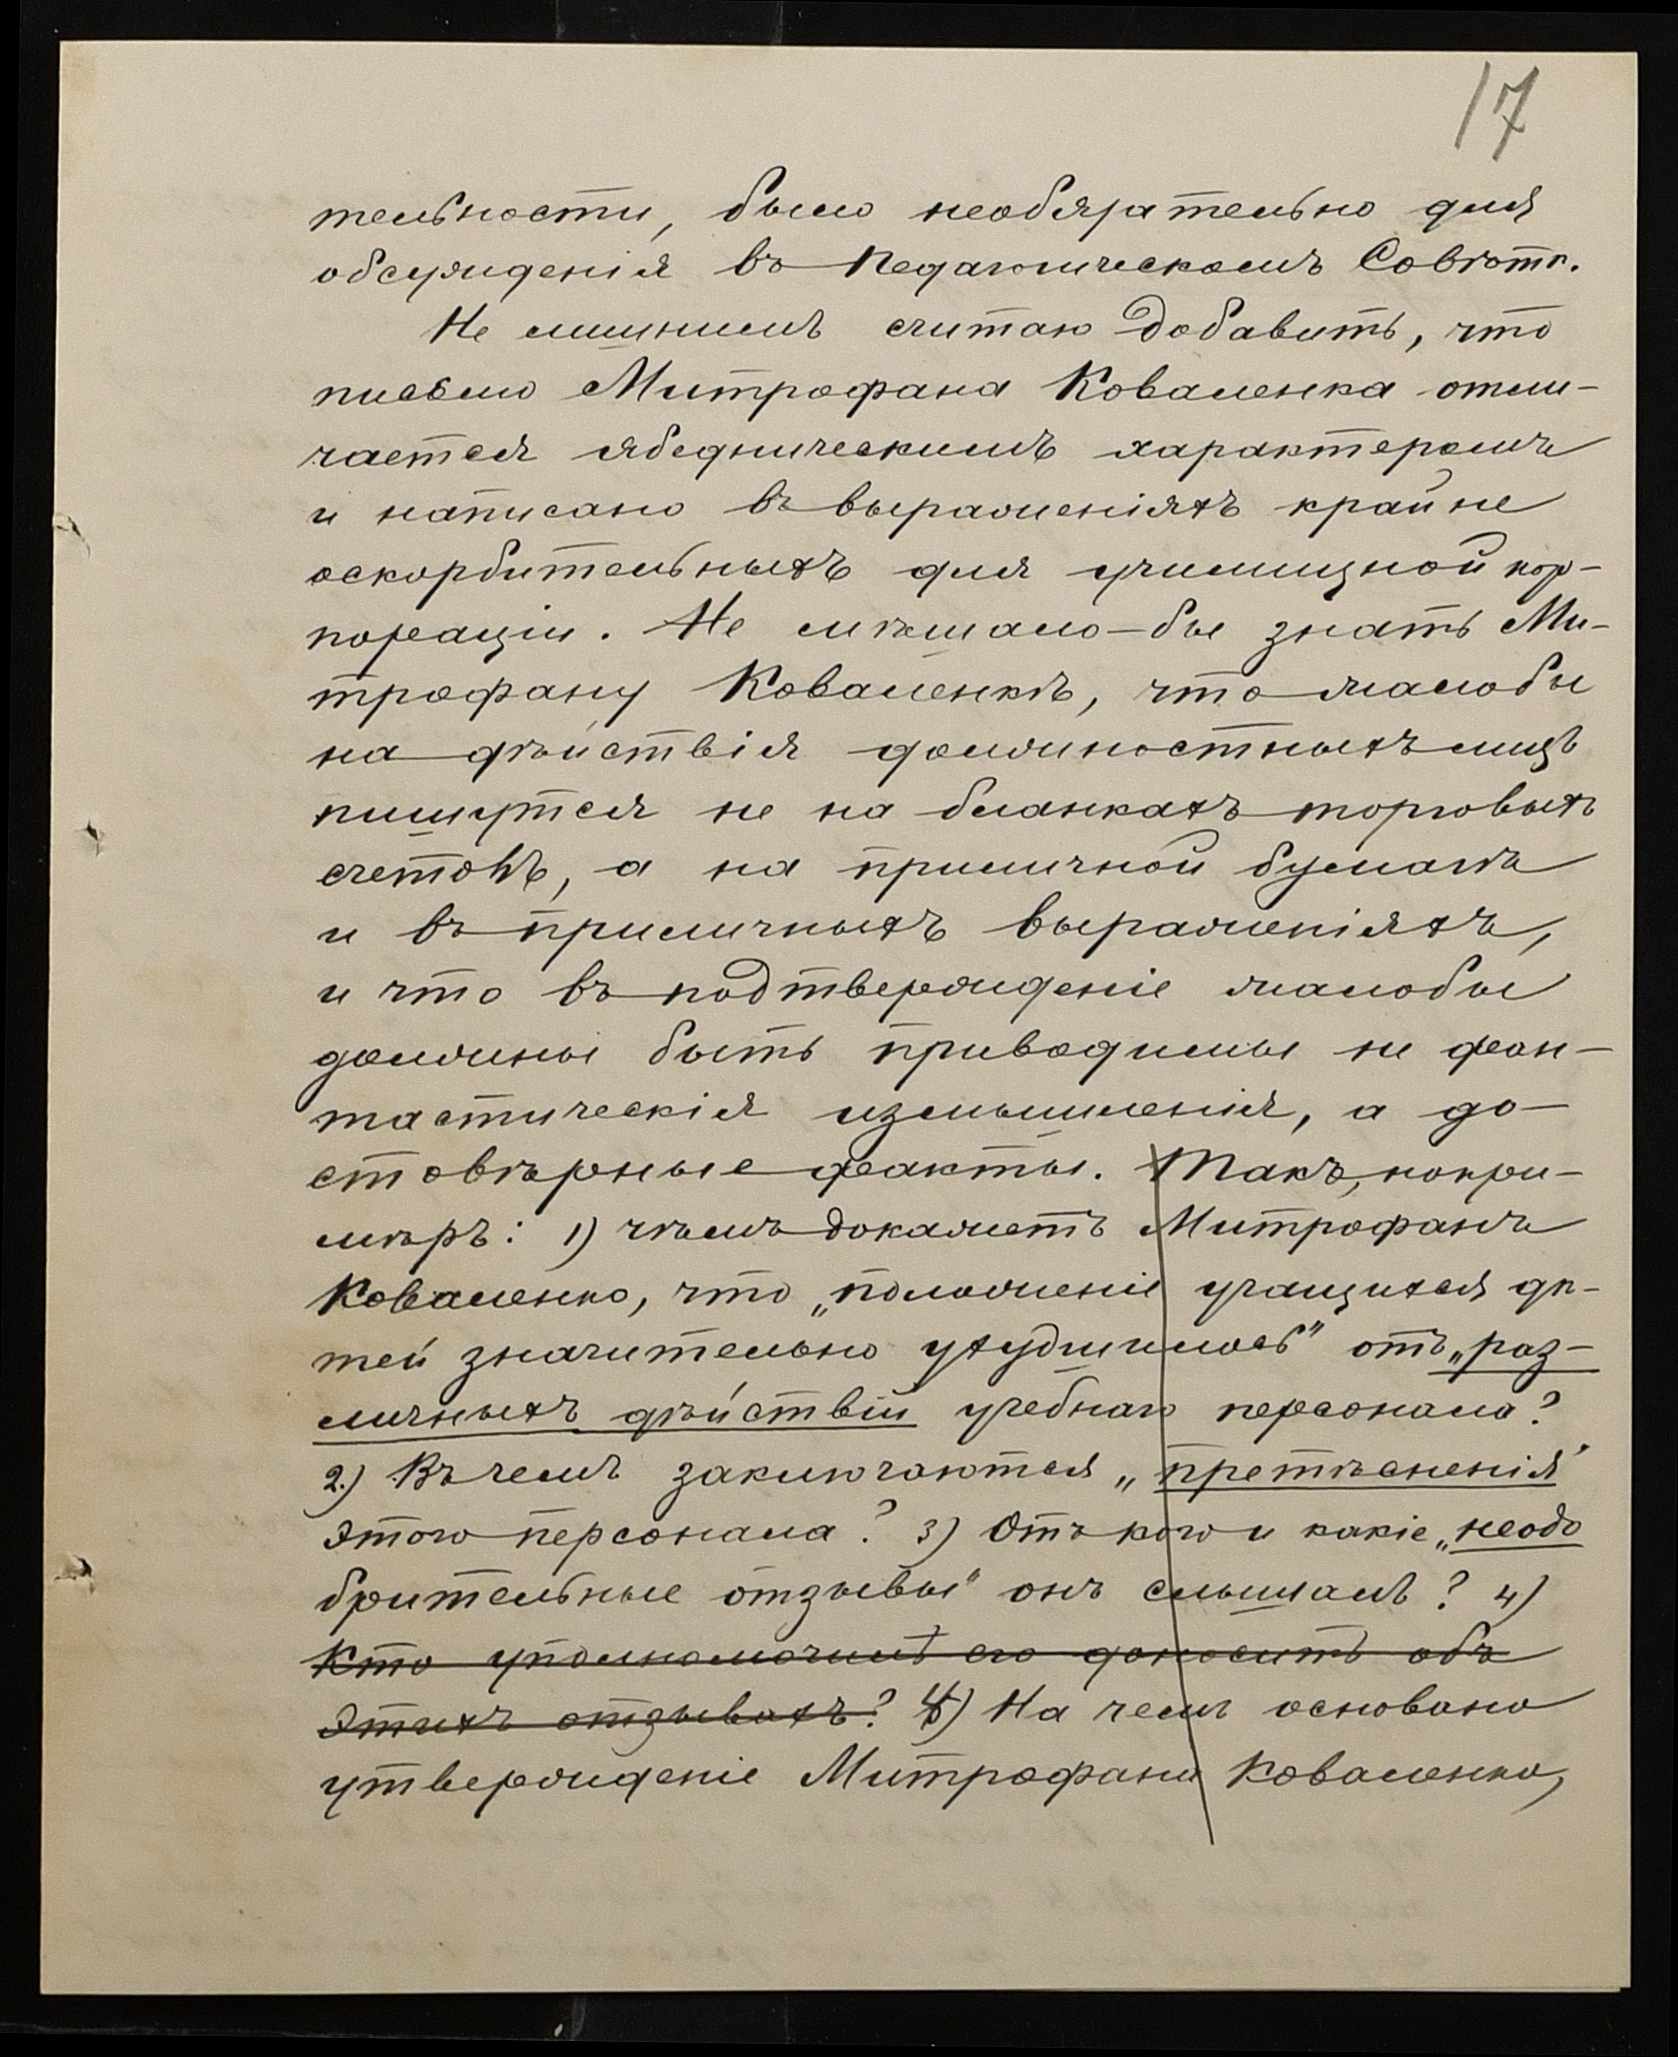 17
тельности, было необязательно для
обсужденія въ Педагогическомъ Совѣтѣ.
Не лишнимъ считаю добавить, что
письмо Митрофана Коваленка отли-
чается ябедническимъ характеромъ
и написано въ выраженіяхъ крайне
оскорбительныхъ для училищной кор-
пораціи. Не мѣшало-бы знать Ми-
трофану Коваленкѣ, что жалобы
на дѣйствія должностныхъ лицъ
пишутся не на бланкахъ торговыхъ
счетовъ, а на приличной бумагѣ
и въ приличныхъ выраженіяхъ,
и что въ подтвержденіе жалобы
должны быть приводимы не фан-
тастическія измышленія, а до-
стовѣрные факты. Такъ, напри-
мѣръ: 1) чѣмъ докажетъ Митрофанъ
Коваленко, что „положеніе учащихся дѣ-
тей значительно ухудшилось" отъ „раз-
личныхъ дѣйствій учебнаго персонала?
2.) Въ чемъ заключаются „претѣсненія"
этого персонала? 3) Отъ кого и какіе „неодо
брительные отзывы" онъ слышалъ? 4)
Кто уполномочилъ его доносить объ
этихъ отзывахъ? 4) На чемъ основано
утвержденіе Митрофана Коваленко,